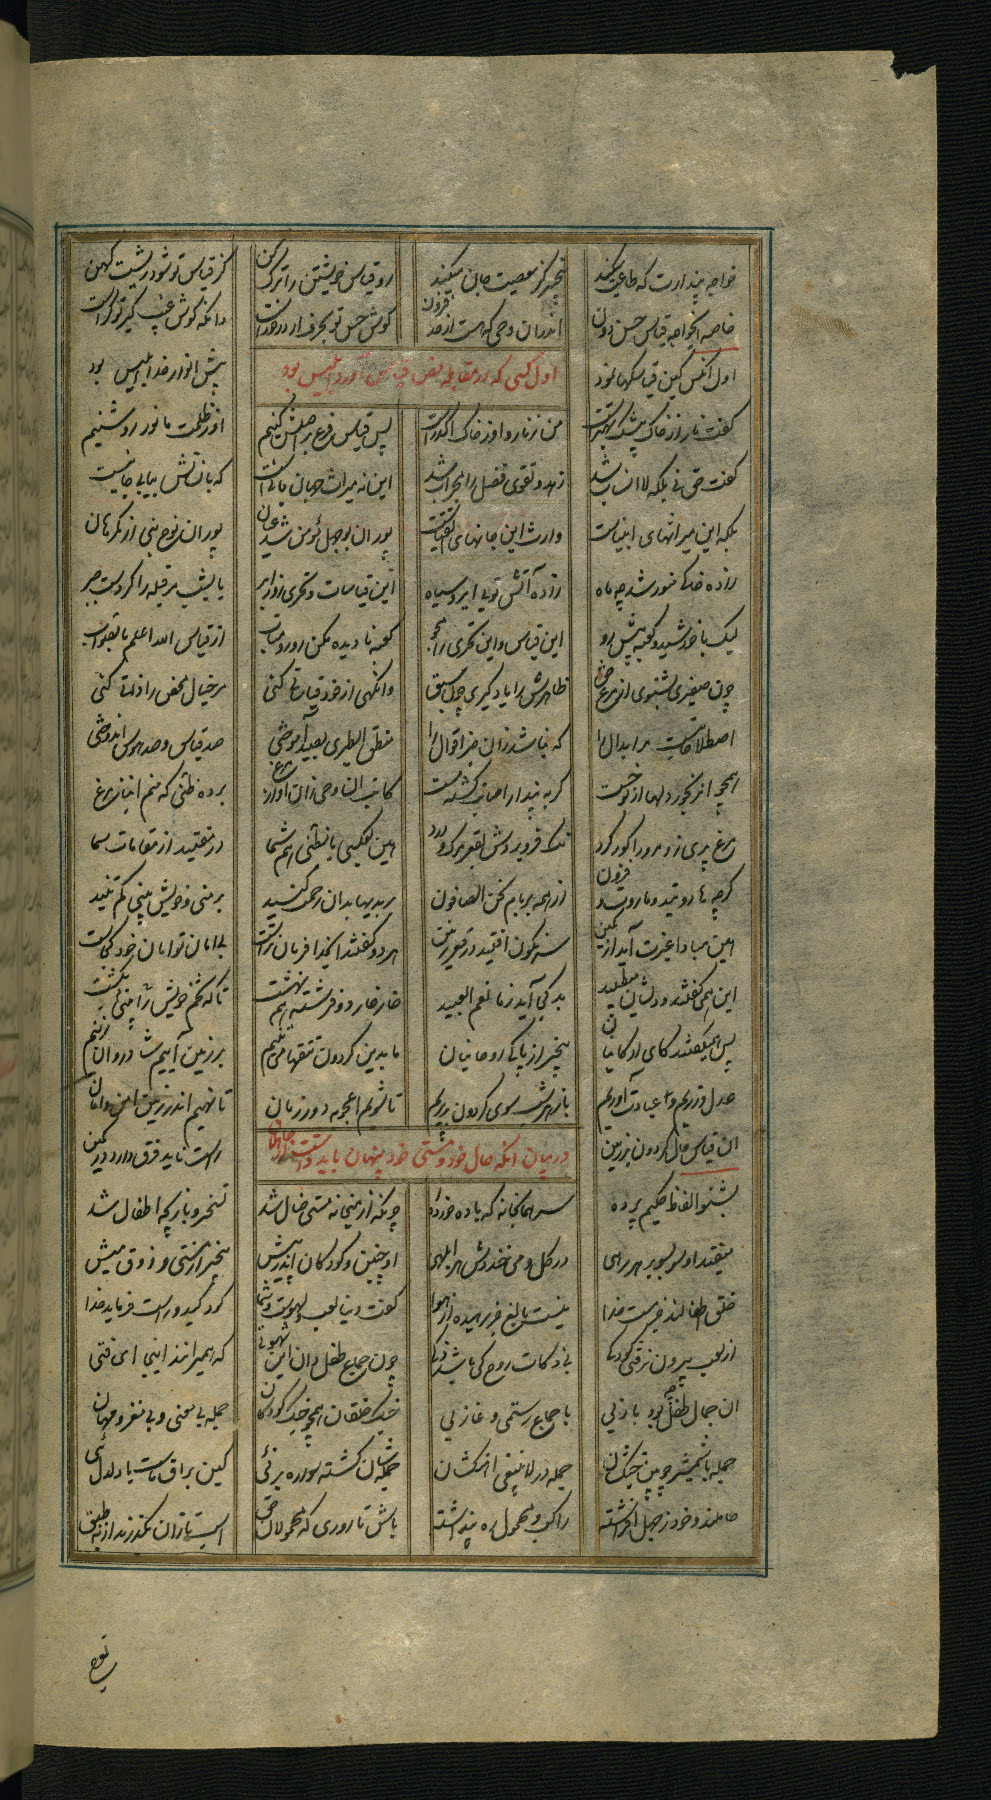 خواجه پندارد که طاعت میکند بیخبر کز معصیت جان میکند رو قیاس خویشتن را ترک کن کز قیاس تو شود ریشت کهن
خاصه ایخواجه قیاس حس دون اندران وحی که هست از حد فزون گوش حس تو بحرف ار درخورست دانکه گوش غیب گیر تو کرست
اول کسی که در مقابله نص قیاس آورد ابلیس بود
اول آنکس کین قیاسکها نمود پیش انوار خدا ابلیس بود
گفت نار از خاک بیشک بهترست من ز نار و او ز خاک اکدرست پس قیاس فرع بر اصلش کنیم او ز ظلمت ما ز نور روشنیم
گفت حق نی بلکه لا انساب شد زهد و تقوی فضل را محراب شد این نه میراث جهان فانیست که بانسابش بیابی جانیست
بلکه این میراثهای انبیاست وارث این جانهای اتقیاست پور ان بوجهل شد مؤمن عیان پور ان نوح نبی از گمرهان
زاده خاکی منور شد چو ماه زاده آتش تویی ای رو سیاه این قیاسات و تحری روز ابر یا بشب مر قبله را کردست حبر
لیک با خورشید و کعبه پیش رو این قیاس و این تحری را مجو کعبه نادیده مکن رو رو متاب از قیاس الله اعلم بالصواب
چون صفیری بشنوی از مرغ حق ظاهرش را یاد گیری چون سبق وانگهی از خود قیاساتی کنی مر خیال محض را ذاتی کنی
اصطلاحاتیست مر ابدال را که نباشد زان خبر اقوال را منطق الطیری بصوت آموختی صد قیاس و صد هوس اندوختی
همچو ان رنجور دلها از تو خست کر به پندار اصابت گشته مست کاتب ان وحی زان آواز مرغ برده ظنی که منم انباز مرغ
مرغ پری زد مرورا کور کرد نک فرو بردش بقعر مرگ و درد هین بعکسی یا بظنی هم شما در میفتید از مقامات سما
گرچه هاروتید و ماروت و فزون از همه بر بام نحن الصافون بر بدیهای بدان رحمت کنید بر منی و خویش بینی کم تنید
هین مبادا غیرت آید از کمین سرنگون افتید در قعر زمین هر دو گفتند ایخدا فرمان تراست بی امان تو امان خود کجاست
این همی گفتند و دلشان میطپید بد کجا آید ز ما نعم العبید خار خار دو فرشته هم نهشت تا که تخم خویش بینی را نکشت
پس همیگفتند کای ارکانیان بیخبر از پاکی روحانیان ما بدین گردون تتقها می تنیم بر زمین آییم و شادروان زنیم
عدل ورزیم و عبادت آوریم باز هر شب سوی گردون بر پریم تا شویم اعجوبه دور زمان تا نهیم اندر زمین امن و امان
ان قیاس حال گردون بر زمین راست ناید فرق دارد در کمین
در بیان انکه حال خود و مستی خود پنهان باید داشت از جاهلان
بشنو الفاظ حکیم پرده سر همانجا نه که باده خورده چونکه از میخانه مستی ضال شد تسخر و بازیچه اطفال شد
میفتد او سو بسو بر هر رهی در گل و می خنددش هر ابلهی او چنین و کودکان اندر پیش بیخبر از مستی و ذوق میش
خلق اطفالند جز مست خدا نیست بالغ جز رهیده از هوا گفت دنیا لعب و لهوست و شما کودکید و راست فرماید خدا
از لعب بیرون نرفتی کودکی بی ذکات روح کی باشد ذکی چون جماع طفل دان این شهوتی که همیرانند اینجا ای فتی
ان جماع طفل چه بود بازیی با جماع رستمی و غازیی جنگ خلقان همچو جنگ کودکان جمله بی معنی و بی مغز و مهان
جمله با شمشیر چوبین جنگشان جمله در لا ینفعی اهنگشان جمله شان گشته سواره بر نئی کین براق ماست یا دلدل پئی
حاملند و خود ز جهل افراشته راکب و محمول ره پنداشته باش تا روزی که محمولان حق اسب تازان بگذرند از نه طبق